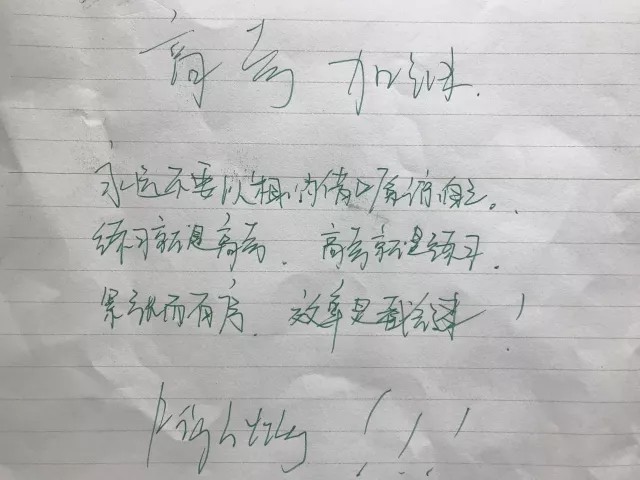 高考 加油.
永远不要以粗心的借口原谅自己。
练习就是高考. 高考就是练习.
紧张而有序. 效率是关键!
!!!